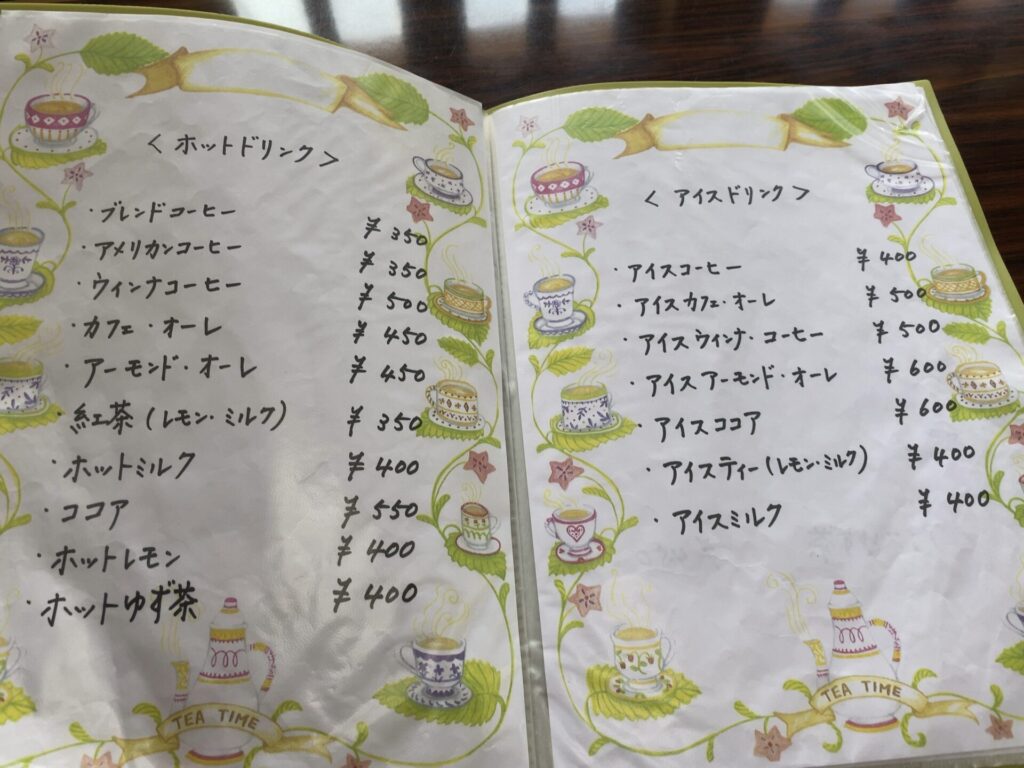 ＜ホットドリンク＞
・ブレンドコーヒー ¥350
・アメリカンコーヒー ¥350
・ウィンナコーヒー ¥500
・カフェ・オーレ ¥450
・アーモンド・オーレ ¥450
・紅茶(レモン・ミルク) ¥350
・ホットミルク ¥400
・ココア ¥550
・ホットレモン ¥400
・ホットゆず茶 ¥400
TEA TIME
＜アイスドリンク＞
・アイスコーヒー ¥400
・アイスカフェ・オーレ ¥500
・アイスウィンナ・コーヒー ¥500
・アイスアーモンド・オーレ ¥600
・アイスココア ¥600
・アイスティー(レモン・ミルク) ¥400
・アイスミルク ¥400
TEA TIME